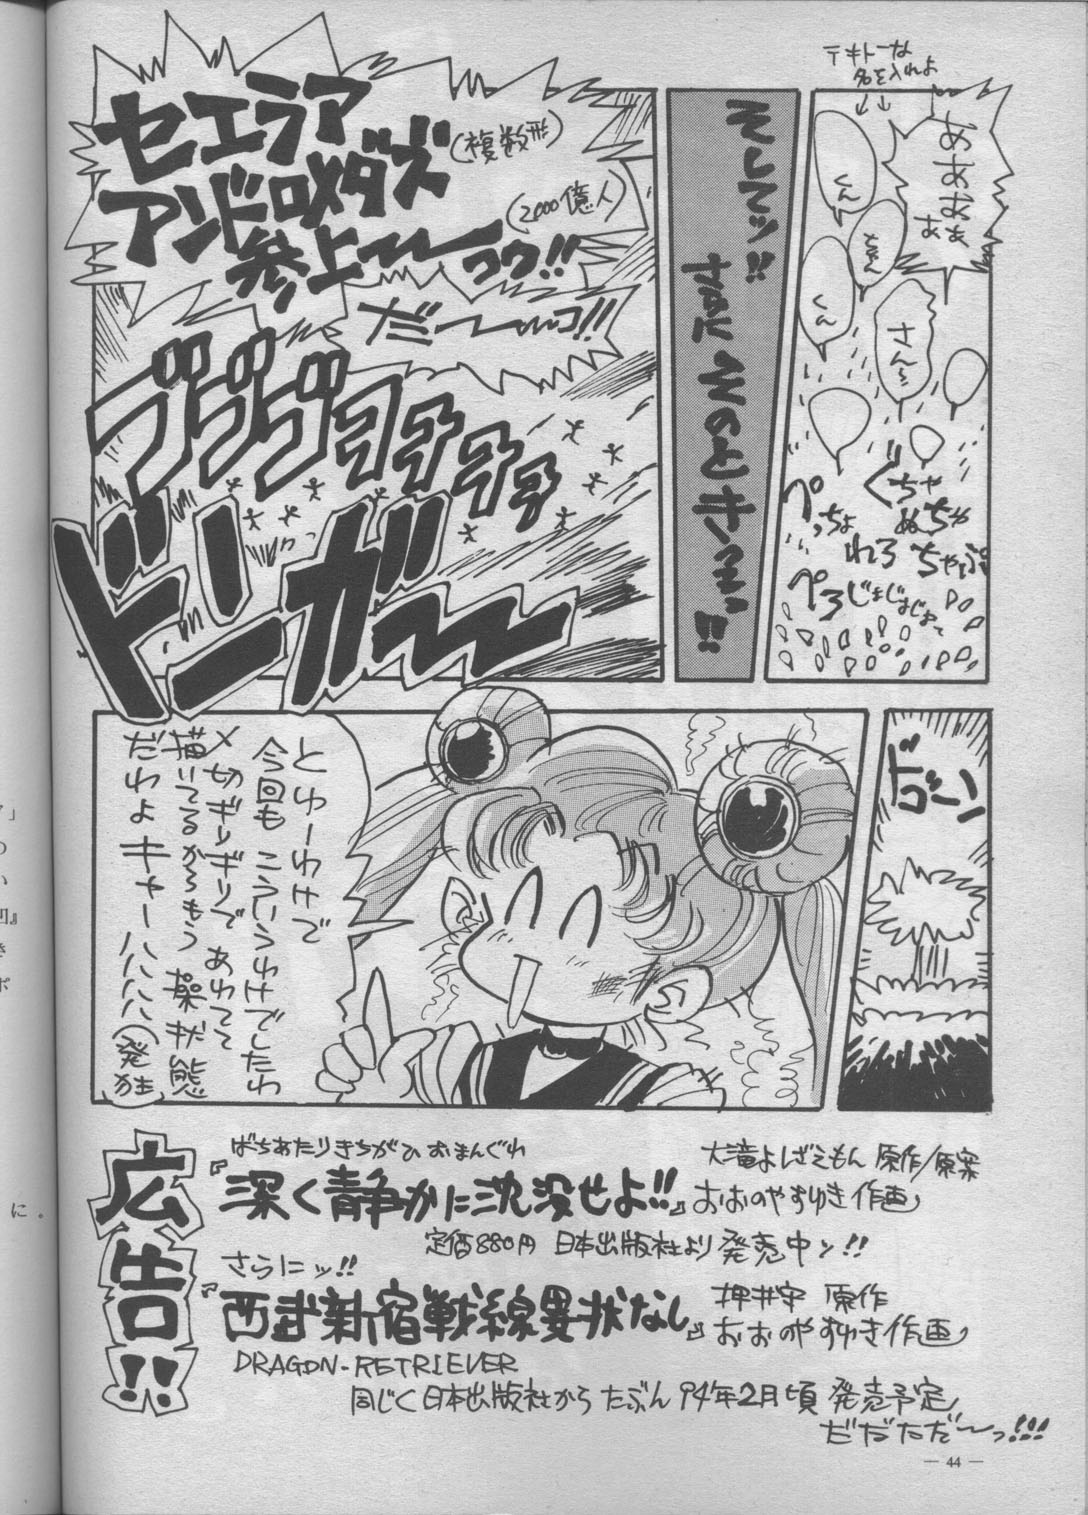 テキトーな
名を入れよ
ああああ
くん
ちゃん
くん
さん
ぐちゃ
ぬちゃ
ちゃぷ
れろ
ぺっちょ
ぺろ
そしてッ!!
まさに そのときっっ!!
セエラア
アンドロメダズ
(複数形)
(2000億人)
参上〜〜っ!!
だ〜〜っ!!
ドンガ〜〜
ボゴーン
とゆーわけで
今回も こういうわけでしたわ
〆切ギリギリで あわてて
描いてるからもう 操状態
だわよ キャーハハハハ(発狂)
広告!!
ばちあたりきちがひ おまんぐわ
『深く静かに沈没せよ!!』
大滝よしざえもん 原作/原案
おおのやすゆき 作画
定価880円 日本出版社より 発売中ッ!!
さらにッ!!
『西武新宿戦線異状なし』
押井守 原作
おおのやすゆき 作画
DRAGON-RETRIEVER
同じく日本出版社から たぶん 94年2月頃 発売予定
だだただ〜っ!!!
— 44 —
に。